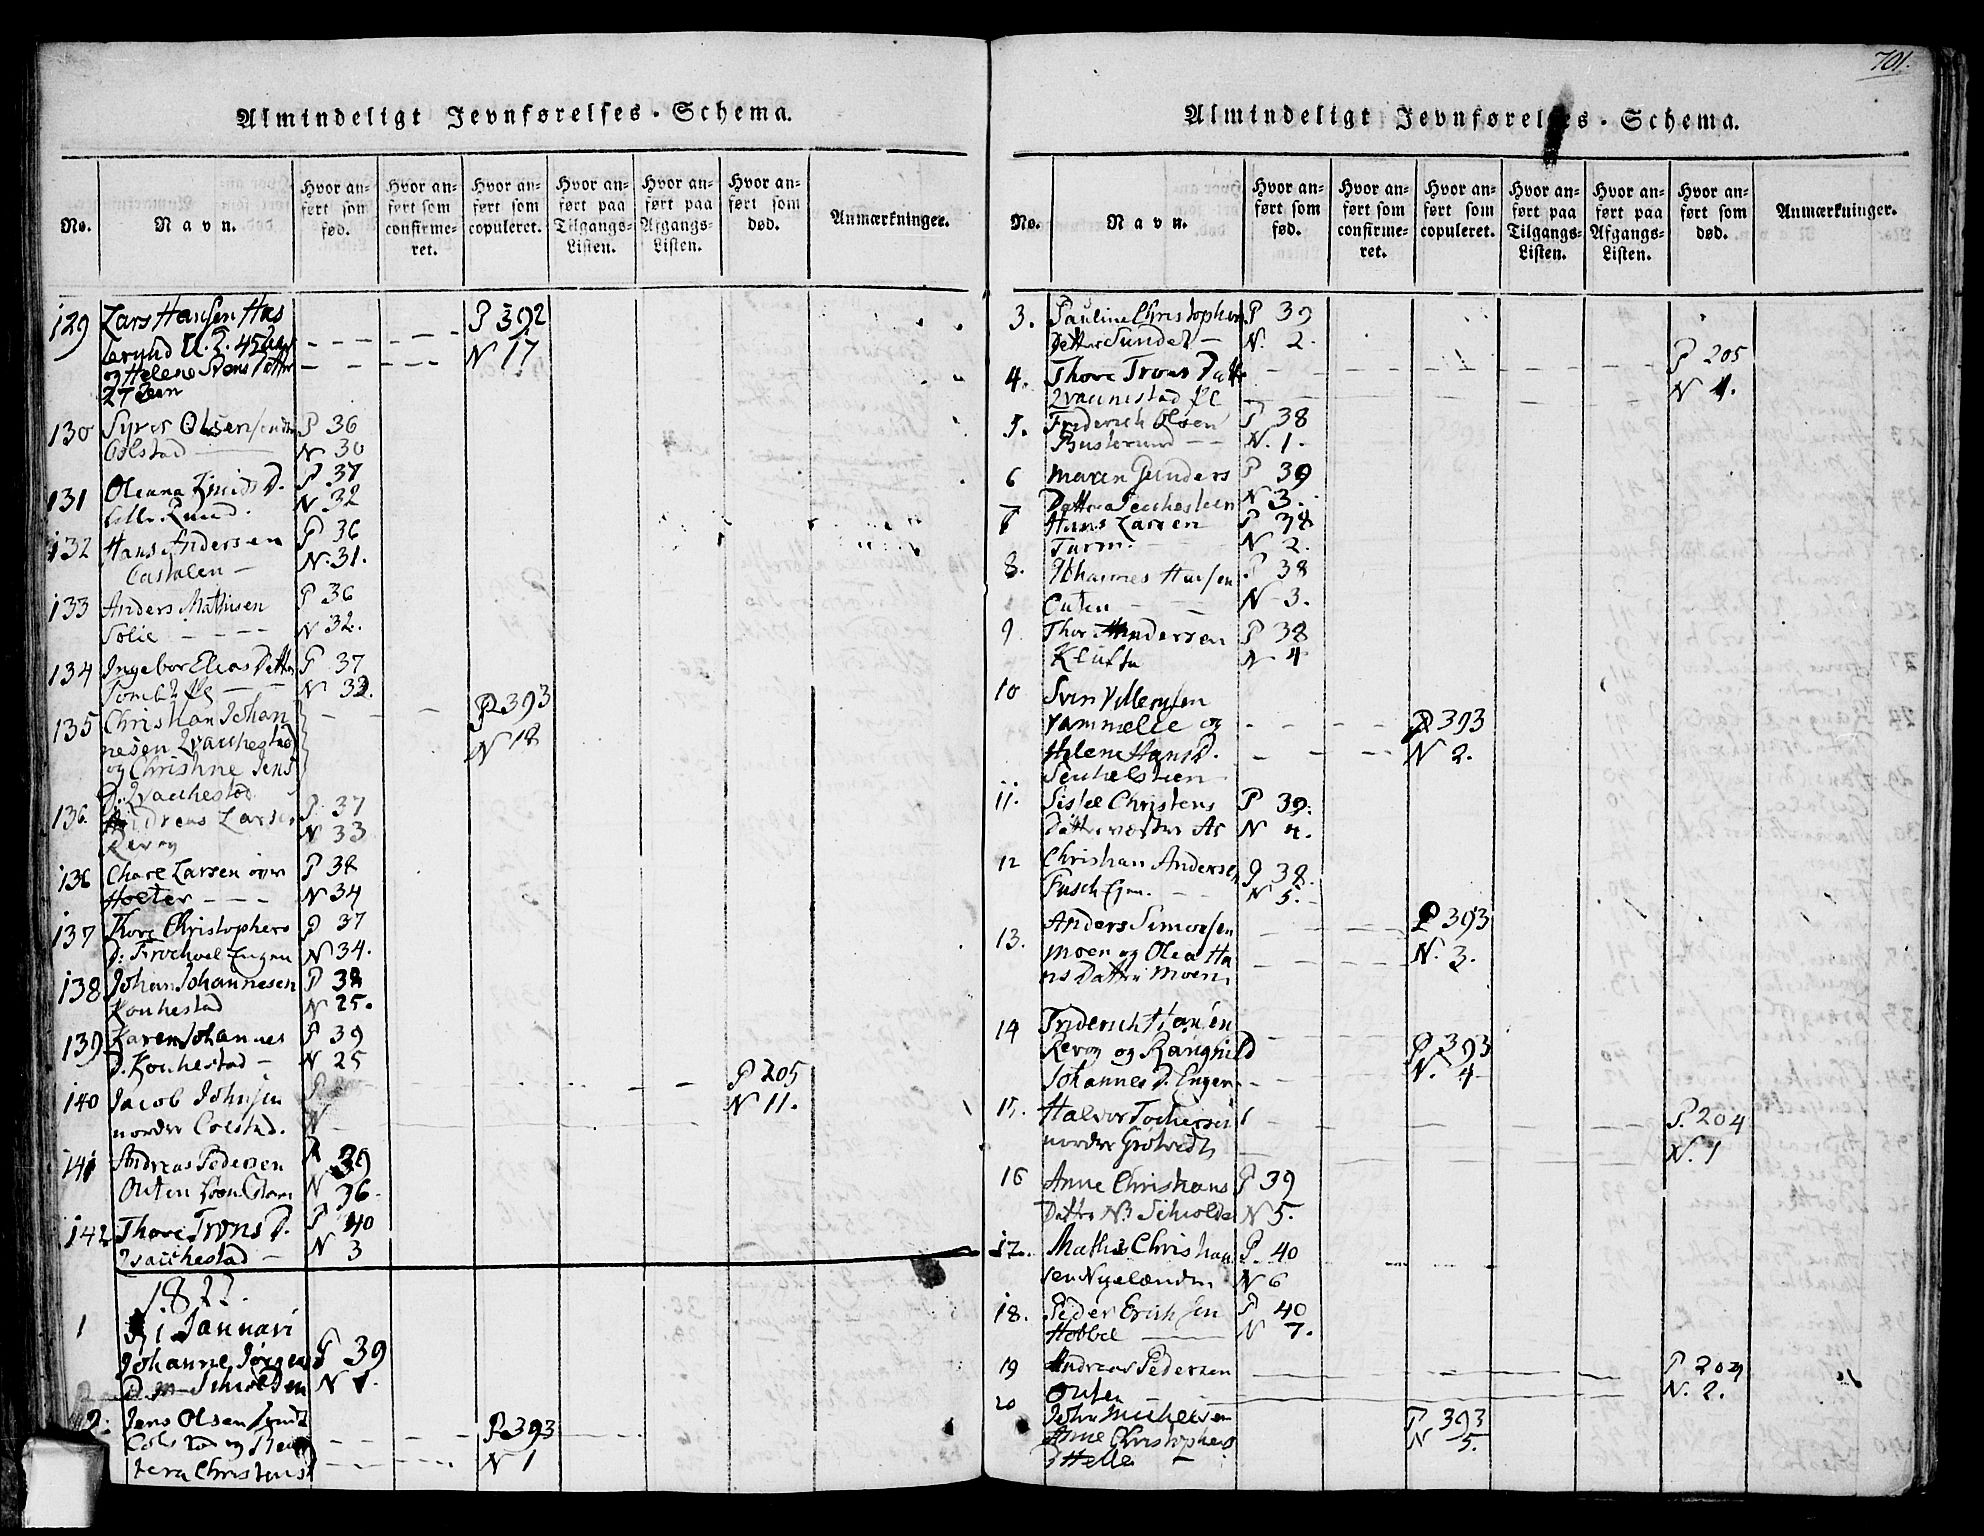 701.
Almindeligt Jevnførelses-Schema.
No.
Navn.
Hvor anført som fød.
Hvor anført som confirmeret.
Hvor anført som copuleret.
Hvor anført paa Tilgangs-Listen.
Hvor anført paa Afgangs-Listen.
Hvor anført som død.
Anmærkninger.
129 Lars Hansen P 392
og Helene Svens Datter N 17
130 Syver Olsen P 36
Colstad N 30
131 Oleana Knuds D. P 37
Lille Rund. N 32
132 Hans Andersen P 36
N. 31.
133 Anders Mathisen P 36
Solie N 32.
134 Ingebor Elias Datter P 37
N 32.
135 Christian Johan P 393
nesen Qvachestad N 18
og Christine Jens
D. Qvachestad
136. Andreas Larsen P. 37
Revoy N 33
136 Chare Larsen over P 38
Holter N 34
137 Thore Christophers P 37
D: Frochoel Engen N 34.
138 Johan Johannesen P 38
Konhestad N 25.
139 Karen Johannes P 39
D. Konhestad N 25
140 Jacob Johnsen P P 205
nordre Colstad. N N 11.
141 Andreas Pedersen P 39
Outen N 36.
142 Thore Trons D. P 40
Qvachestad N 3
1822.
1 d 1 Januari
Johanne Jørgens P 39
D. Schiolden N 1.
2. Jens Olsen P 393
Colstad og
Christens N 1
Almindeligt Jevnførelses-Schema.
No.
Navn.
Hvor anført som fød.
Hvor anført som confirmeret.
Hvor anført som copuleret.
Hvor anført paa Tilgangs-Listen.
Hvor anført paa Afgangs-Listen.
Hvor anført som død.
Anmærkninger.
3. Pauline Christophers P 39
Datter Sundet N. 2.
4. Thore Trons Datter P 205
Qvachestad N 1.
5. Friderich Olsen P 38
Busterund N. 1.
6 Maren Gunders P 39
Datter N 3.
7 Hans Larsen P 38
Turn N 2.
8. Johannes Hansen P 38
Outen N 3.
9 Thor Andersen P 38
Klufta N 4
10 Sven Villumsen
Vammelie og P 393
Helene Hans D. N 2.
11. Sisle Christens P 39.
Datter N 4.
12 Christian Andersen P 38.
N 5.
13. Anders Simonsen P 393
Moen og Olea Ha N. 3.
ns Datter Moen
14 Friderich Hansen
Revoy og Rangnild P 393
Johannes D. Engen N. 4
15. Halvor P. 204
nordre N. 1
16 Anne Christians P 39
Datter N: Schiolde N 5.
17. Mathis Christian P. 40
sen N 6
18. Peder Erichsen P 40
Hobbel N 7.
19 Andreas Pedersen P. 204
Outen N. 2.
20 John Michelsen P 393
Anne Christophers N 5.
D Helle